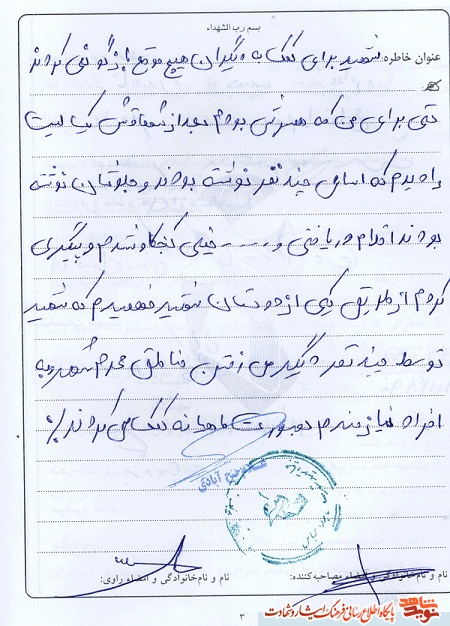 بسم رب الشهداء
عنوان خاطره: شهید برای کمک به دیگران هیچ موقع بازگو نمی کردند
حتی برای من که همسرش بودم بعد از شهادتش یک لیست
را دیدم که اسامی چند نفر نوشته بودند و جلوشان نوشته
بودند اقدام دریافتی و ---- خیلی کنجکاو شدم و پیگیری
کردم از طریق یکی از دوستان شهید فهمیدم که شهید
توسط چند نفر دیگر می رفتن مناطق محروم شهر و به
افراد نیازمند بصورت ماهانه کمک می کردند
نام و نام خانوادگی و امضاء مصاحبه کننده:
نام و نام خانوادگی و امضاء راوی:
۳
نوید شاهد پایگاه اطلاع رسانی فرهنگ ایثار و شهادت